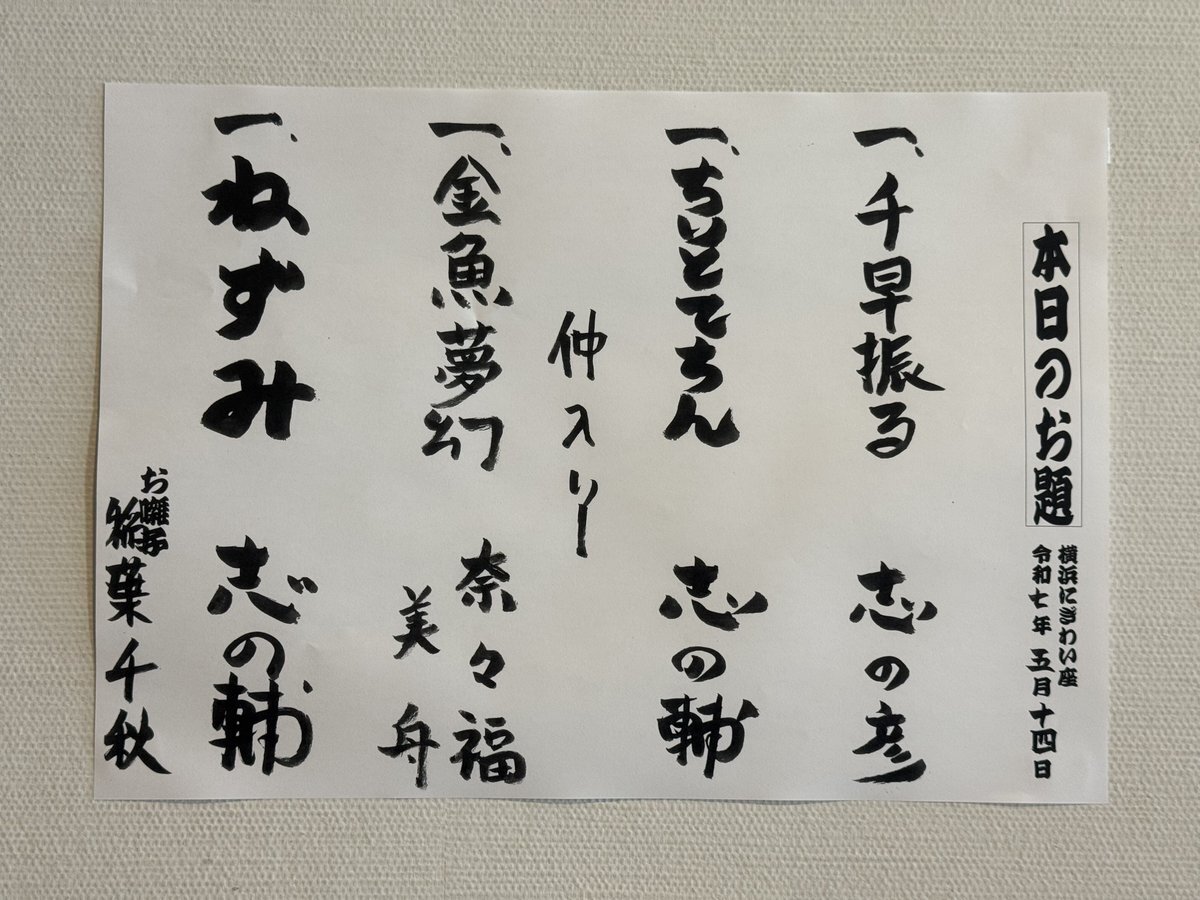 本日のお題
横浜にぎわい座
令和七年 五月十四日
一、千早振る 志の彦
一、ちりとてちん 志の輔
仲入り
一、金魚夢幻 奈々福
美舟
一、ねずみ 志の輔
お囃子
稲葉千秋